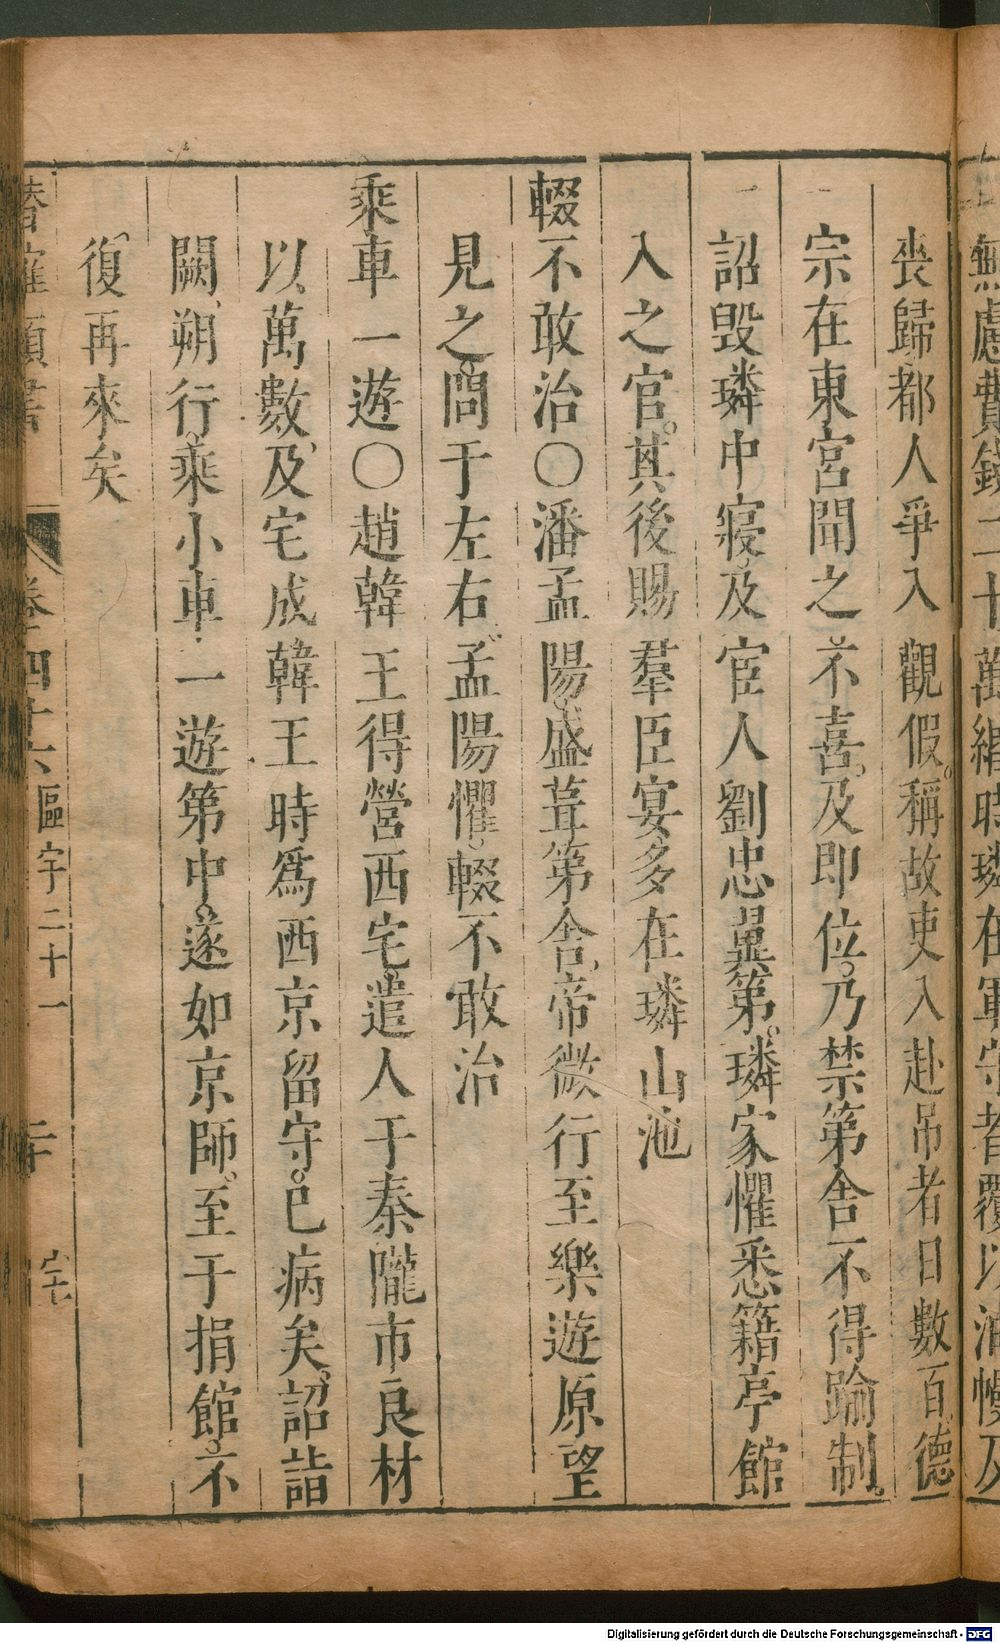 無慮費錢二十萬緡時璘在軍守者覆以油幔及
喪歸都人爭入觀假稱故吏入赴吊者日數百德
宗在東宮聞之不喜及即位乃禁第舍不得踰制
詔毀璘中寢及宦人劉忠翼第璘家懼悉籍亭館
入之官其後賜羣臣宴多在璘山池
輟不敢治○潘孟陽盛葺第舍帝微行至樂遊原望
見之問于左右孟陽懼輟不敢治
乘車一遊○趙韓王得營西宅遣人于秦隴市良材
以萬數及宅成韓王時爲西京留守已病矣詔詣
闕朔行乘小車一遊第中遂如京師至于捐館不
復再來矣
卷百四十六 區宇二十一 二十
Digitalisierung gefördert durch die Deutsche Forschungsgemeinschaft - DFG